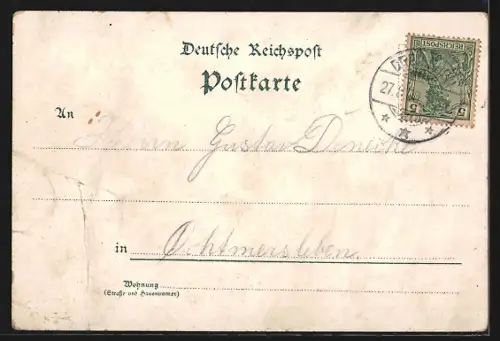 Deutsche Reichspost
Postkarte
REICHSPOST
5 5
27.
An Herrn Gustav Denecke
in Ochtmersleben.
Wohnung
(Straße und Hausnummer)